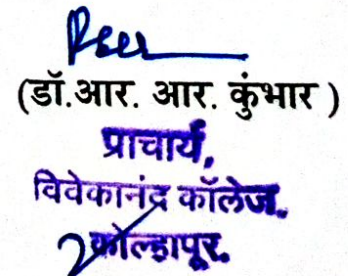 (डॉ.आर. आर. कुंभार )
प्राचार्य,
विवेकानंद कॉलेज,
कोल्हापूर.